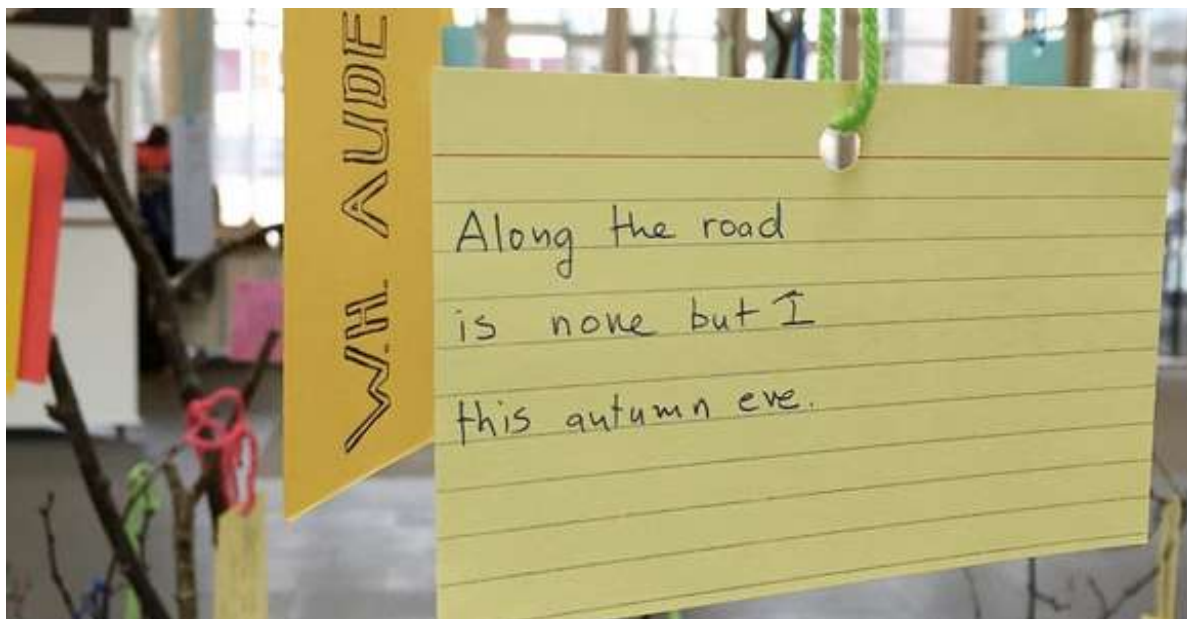 W.H. AUDE
Along the road
is none but I
this autumn eve.